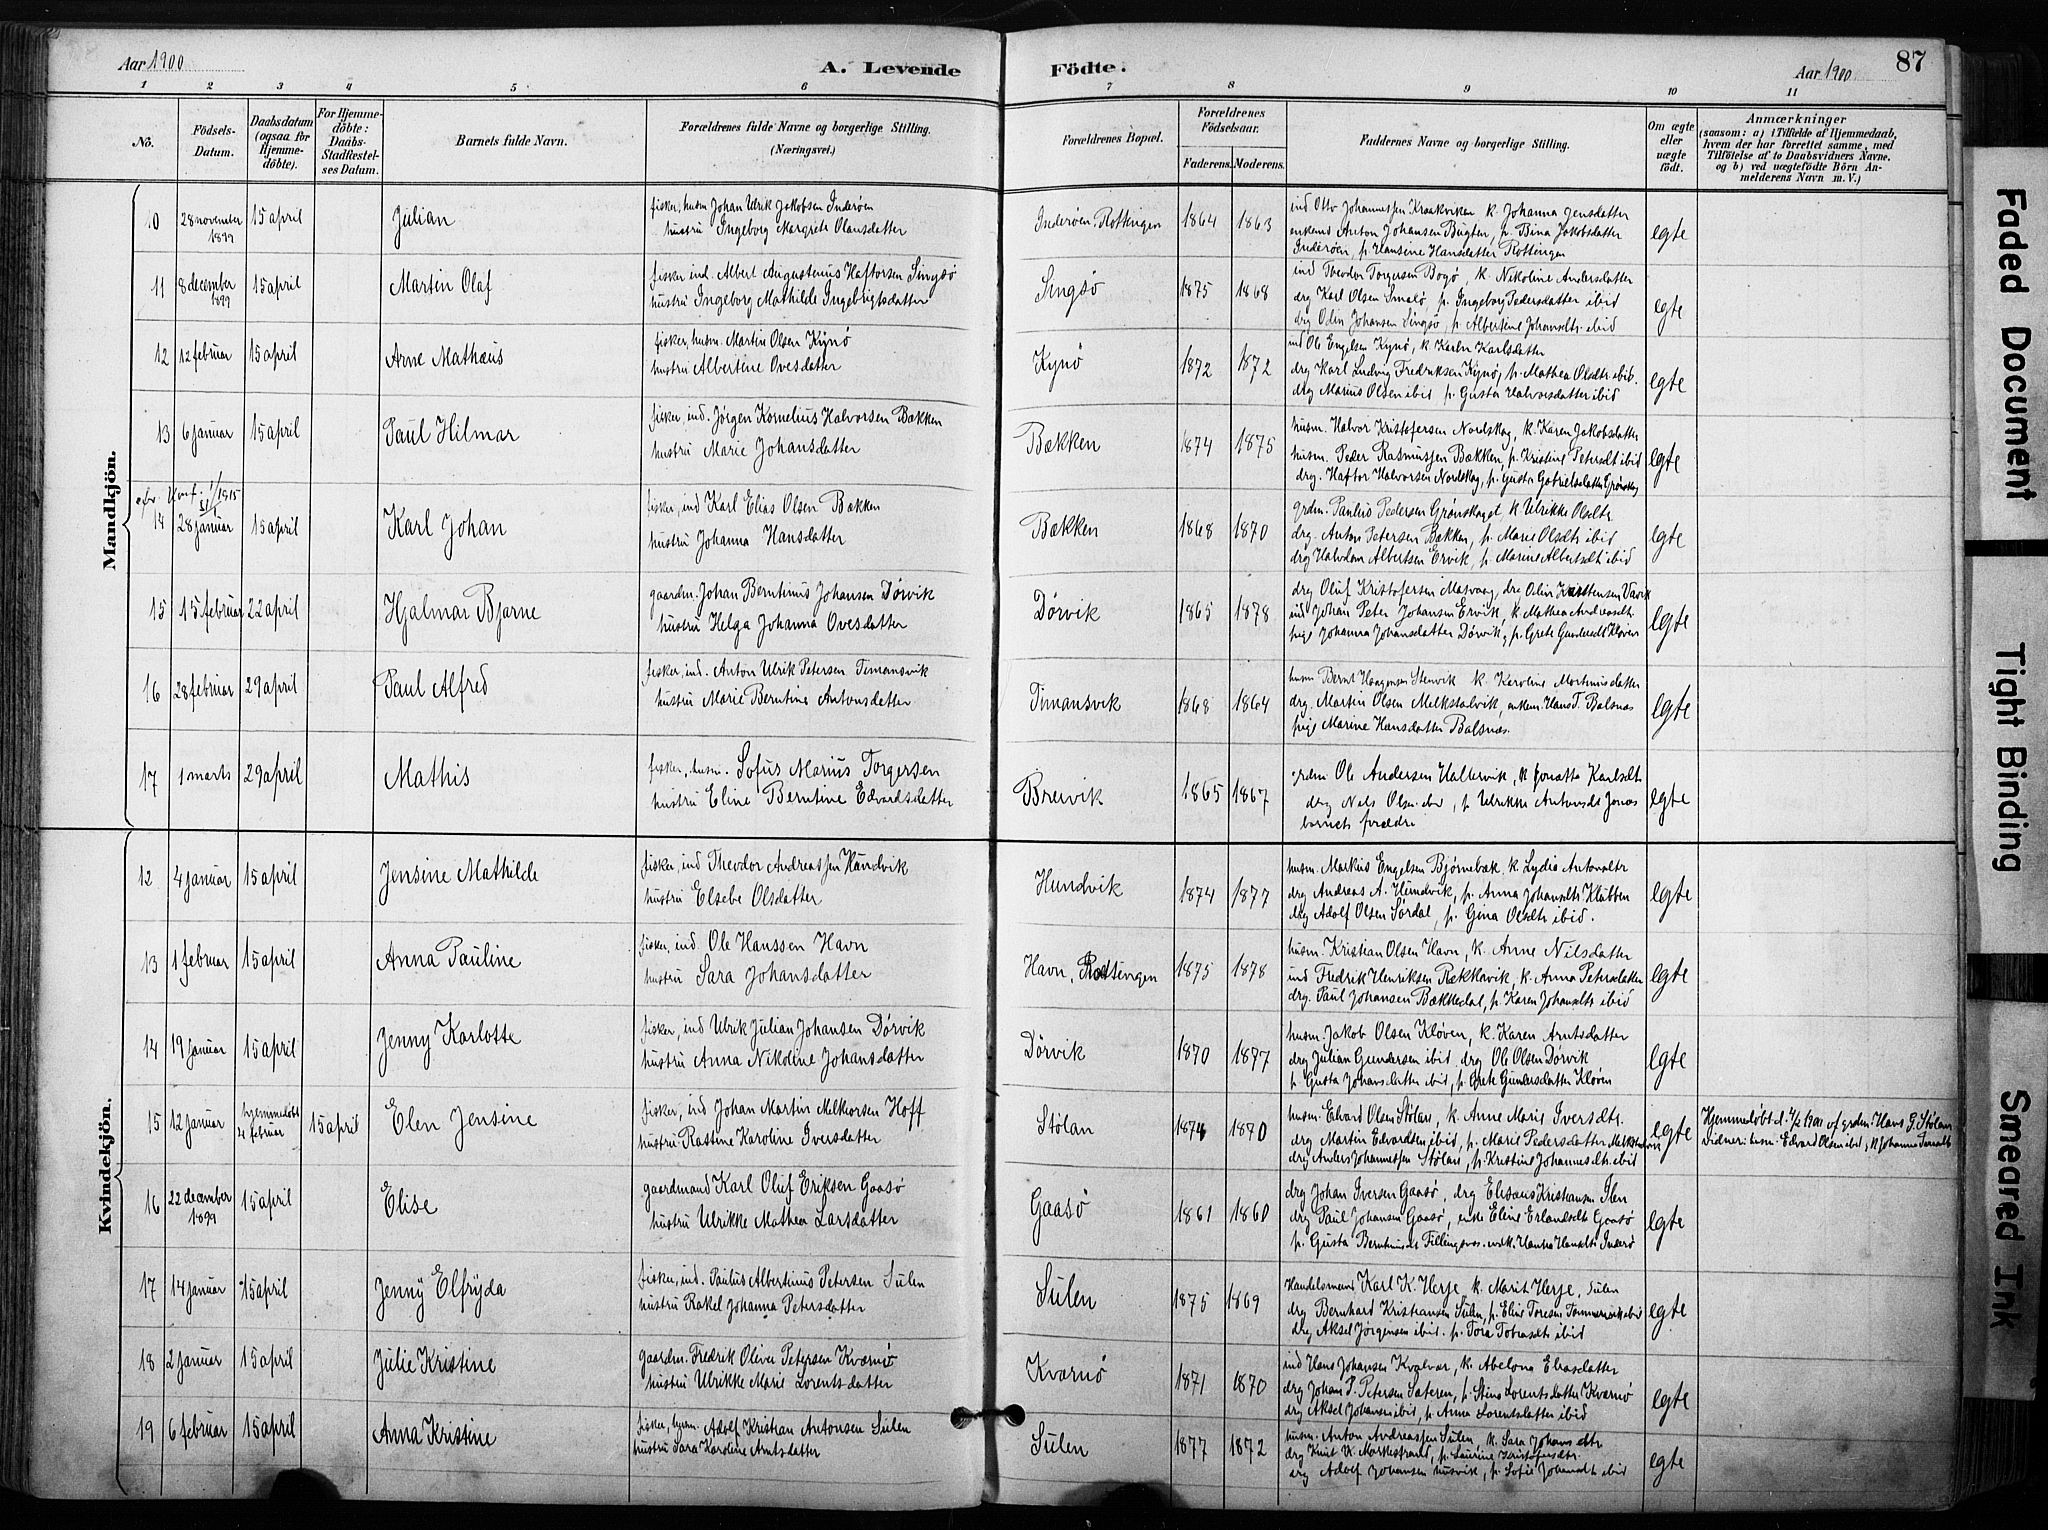 Aar 1900
A. Levende
Födte.
Aar 1900
87
1 2 3 4 5 6 7 8 9 10 11
No.
Födsels-Datum.
Daabsdatum (ogsaa for Hjemme-döbte).
For Hjemme-döbte: Daabs-Stadfæstel-ses Datum.
Barnets fulde Navn.
Forældrenes fulde Navne og borgerlige Stilling. (Næringsvei.)
Forældrenes Bopæl.
Forældrenes Födselsaar.
Faderens. Moderens.
Faddernes Navne og borgerlige Stilling.
Om ægte eller uægte födt.
Anmærkninger
(saasom: a) i Tilfælde af Hjemmedaab, hvem der har forrettet samme, med Tilföielse af to Daabsvidners Navne, og b) ved uægtefödte Börn An-melderens Navn m. V.)
Mandkjön.
10 28 november 1899 15 april Julian
fisker, husm Johan Ulrik Jakobsen Inderøen
hustru Ingeborg Margrete Olausdatter
Inderøen, Rottingen 1864 1863
ind Otto Johannessen Kraakviken k. Johanna Jensdatter
enkem Anton Johansen Bugten, p. Bina Jakobsdatter
Inderøen, p. Hansine Hansdatter Rottingen
egte
11 8 december 1899 15 april Martin Olaf
fisker ind. Albert Augustinus Haftorsen Singsø
hustru Ingeborg Mathilde Ingebrigtsdatter
Singsø 1875 1868
ind Theodor Torgersen Bogø, k. Nikoline Andersdatter
drg Karl Olsen Smalø p. Ingeborg Pedersdatter ibid
drg Odin Johansen Singsø, p. Albertine Johansdtr. ibid
egte
12 12 februar 15 april Arne Mathæus
fisker, husm. Martin Olsen Kynø
hustru Albertine Ovesdatter
Kynø 1872 1872
ind Ole Engelsen Kynø, k Karen Karlsdatter
drg Karl Ludvig Fredriksen Kynø, p. Mathea Olsdtr ibid.
drg Marius Olsen ibid p. Gusta Halvorsdatter ibid
egte
13 6 januar 15 april Paul Hilmar
fisker, ind. Jørgen Kornelius Halvorsen Bækken
hustru Marie Johansdatter
Bækken 1874 1875
husm. Halvor Kristofersen Nordskag, k. Karen Jakobsdatter
husm. Peder Rasmussen Bækken, p. Kristine Petersdt ibid
drg. Haftor Halvorsen Nordskag, p. Gusta Gabrielsdatter Grønskag
egte
14 28 januar 15 april Karl Johan
fisker, ind Karl Elias Olsen Bækken
hustru Johanna Hansdatter
Bækken 1868 1870
grdm. Paulus Pedersen Grønskaget k Ulrikke Olsdtr.
drg. Anton Petersen Bækken, p. Marie Olsdtr ibid
drg Halvdan Albertsen Ervik, p. Marine Albertsdtr ibid
egte
15 15 februar 22 april Hjalmar Bjarne
gaardm. Johan Berntinus Johansen Dørvik
hustru Helga Johanna Ovesdatter
Dørvik 1865 1878
drg Oluf Kristofersen Masvaag, drg Olin
ind Johan Peter Johansen Ervik, k. Mathea Andreasdt.
pige Johanna Johansdatter Dørvik, p. Grete Gundersdt Kløven
egte
16 28 februar 29 april Paul Alfred
fisker, ind. Anton Ulrik Petersen Timansvik
hustru Marie Berntine Antonsdatter
Timansvik 1868 1864
husm Bernt Haagensen Stenvik k. Karoline Martinusdatter
drg. Martin Olsen Melkstalvik, enkem. Hans T. Balsnæs
pige Marine Hansdatter Balsnæs.
egte
17 1 marts 29 april Mathis
fisker, husm. Sofus Marius Torgersen
hustru Eline Berntine Edvardsdatter
Breivik 1865 1867
grdm Ole Andersen Hallervik, k Jonetta Karlsdt.
drg Nils Olsen ibid, p Ulrikke Antonsdt
barnets forældre
egte
Kvindekjön.
12 4 januar 15 april Jensine Mathilde
fisker, ind Theodor Andreassen Hundvik
hustru Elsebe Olsdatter
Hundvik 1874 1877
husm. Markus Engelsen Bjørnebæk k. Lydia Antonsdtr
drg Andreas A. Hundvik, p. Anna Johansdtr Klubben
drg Adolf Olsen Sørdal, p. Gina Olsdtr ibid.
egte
13 1 februar 15 april Anna Pauline
fisker, ind. Ole Hanssen Havn
hustru Sara Johansdatter
Havn, Rottingen 1875 1878
husm. Kristian Olsen Havn, k. Anne Nilsdatter
ind Fredrik Henriksen Rækkavik, k. Anna Petersdatter
drg. Paul Johansen Bækkedal, p. Karen Johansdtr ibid
egte
14 19 januar 15 april Jenny Karlotte
fisker, ind Ulrik Julian Johansen Dørvik
hustru Anna Nikoline Johansdatter
Dørvik 1870 1877
husm. Jakob Olsen Kløven, k. Karen Arntsdatter
drg Julian Gundersen ibid, drg Ole Olsen Dørvik
p. Gusta Johansdatter ibid, p. Grete Gundersdatter Kløven
egte
15 12 januar hjemmedøbt februar 15 april Elen Jensine
fisker, ind Johan Martin Melkiorsen Hoff
hustru Rastine Karoline Iversdatter
Stølan 1874 1870
husm. Edvard Olsen Stølan, k. Anne Marie Iversdtr.
drg Martin Edvardsen ibid, p. Marie Pedersdatter
drg Anders Johannessen Stølan, p. Kristine Johannesdtr. ibid
egte
Hjemmedøbt d. 1900 af grdm. Hans G. Stølan
vidner: husm. Edvard Olsen ibid, k Johanna
16 22 december 1899 15 april Elise
gaardmand Karl Oluf Eriksen Gaasø
hustru Ulrikke Mathea Larsdatter
Gaasø 1861 1860
drg Johan Iversen Gaasø, drg Elisæus Kristiansen Ilen
drg Paul Johansen Gaasø, enke Eline Erlandsdtr Gaasø
p. Gusta Berntinusdt Fillingsnes.
egte
17 14 januar 15 april Jenny Elfryda
fisker, ind. Paulus Albertinus Petersen Sulen
hustru Rakel Johanna Petersdatter
Sulen 1875 1869
Handelsmand Karl K. Herje k. Marit Herje, Sulen
drg Bernhard Kristiansen Sulen, p. Elise ibid
drg Aksel Jørgensen ibid. p. Tora Tobiasdtr ibid
egte
18 2 januar 15 april Julie Kristine
gaardm. Fredrik Oliver Petersen Kværnø
hustru Ulrikke Marie Lorentsdatter
Kværnø 1871 1870
ind Hans Johansen Kvalvær, k. Abelona Eliasdatter
drg Johan P. Petersen Sæteren, p. Stina Lorentsdatter Kværnø
drg Aksel Johansen ibid, p. Anna Lorentsdatter ibid
egte
19 6 februar 15 april Anna Kristine
fisker, husm. Adolf Kristian Antonsen Sulen
hustru Sara Karoline Arntsdatter
Sulen 1877 1872
husm. Anton Andreassen Sulen k. Sara Johansdtr
drg Knut K. Markestrand, p. Laurine Kristofersdtr.
drg Adolf Johansen Husvik, p. Sofie Johansdt ibid
egte
Faded Document
Tight Binding
Smeared Ink